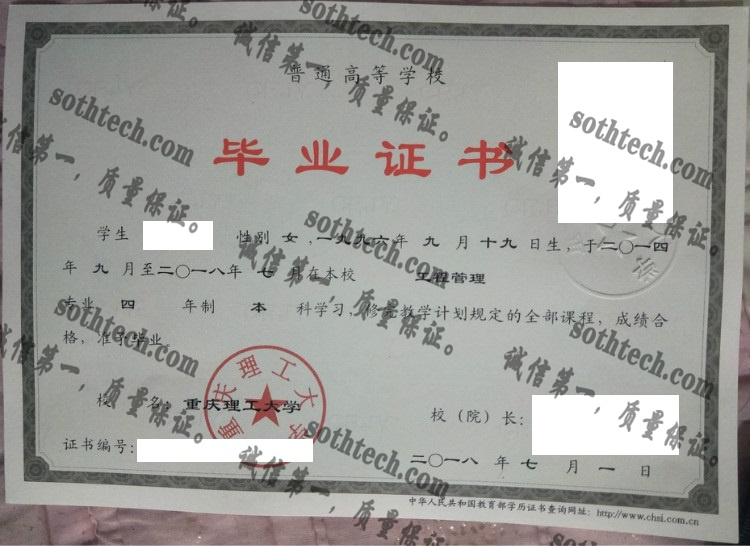 普通高等学校
毕业证书
学生 性别 女，一九九六年 九 月十九日生，于二〇一四
年 九 月至二〇一八年 七 月在本校 工程管理
专业 四 年制 本 科学习，修完教学计划规定的全部课程，成绩合
格，准予毕业。
校 名：重庆理工大学
校（院）长：
证书编号：
二〇一八 年 七 月 一 日
中华人民共和国教育部学历证书查询网址：http://www.chsi.com.cn
重庆理工大学
sothtech.com
诚信第一，质量保证。
sothtech.com
诚信第一，质量保证。
sothtech.com
诚信第一，质量保证。
sothtech.com
诚信第一，质量保证。
sothtech.com
诚信第一，质量保证。
sothtech.com
诚信第一，质量保证。
sothtech.com
诚信第一，质量保证。